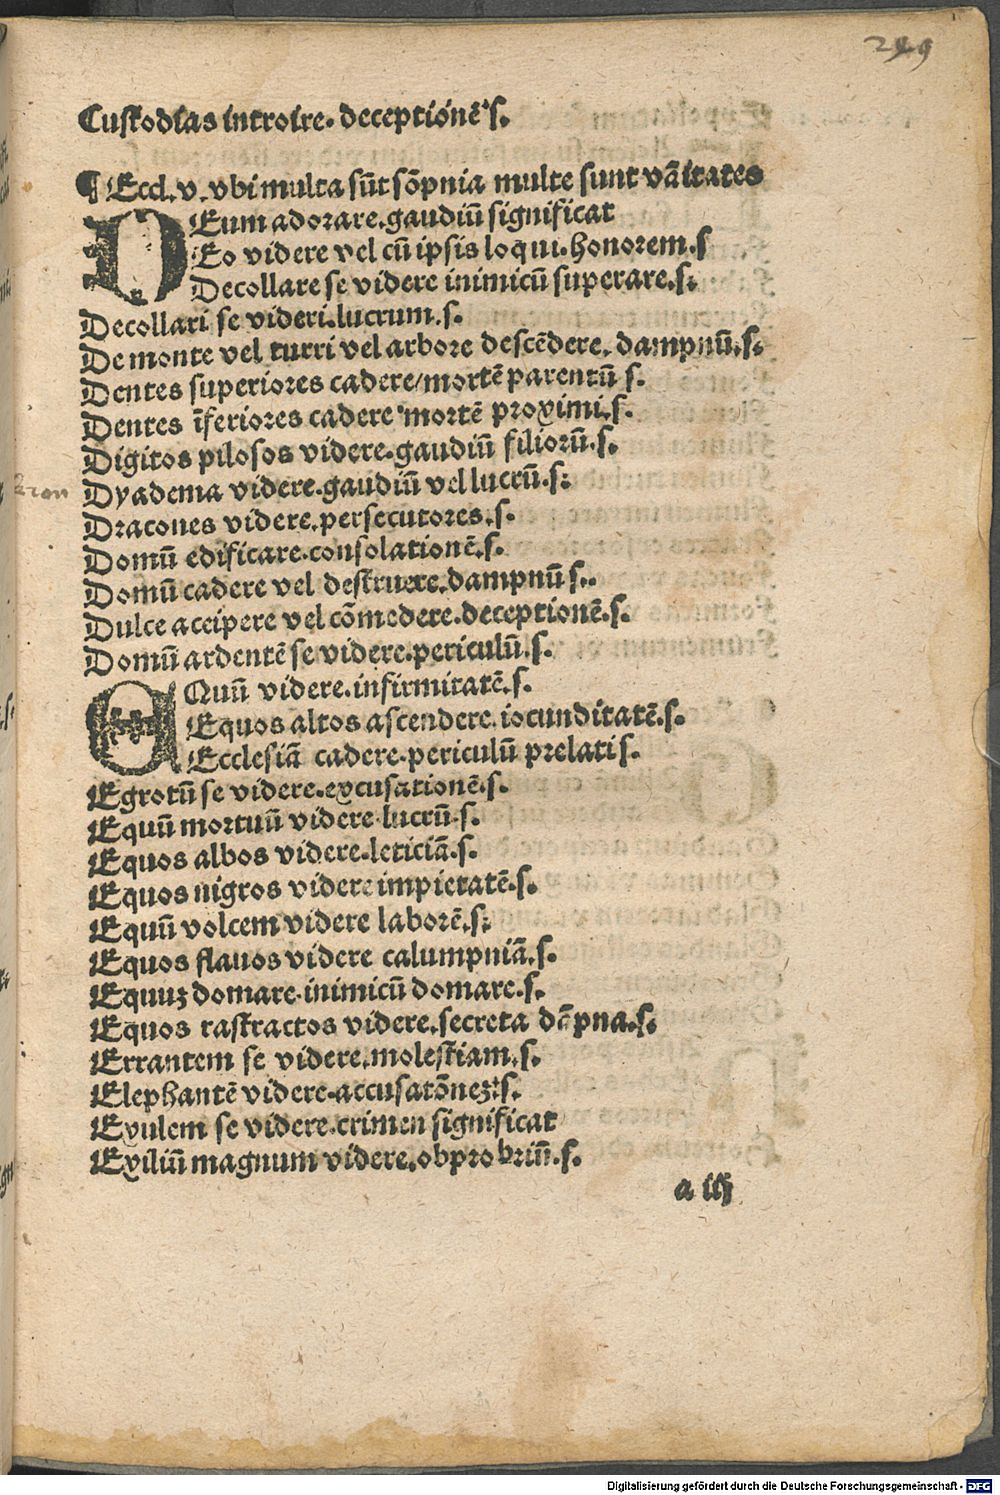 299
Custodias introire. deceptionē s.
¶ Eccl. v. vbi multa sūt sōpnia multe sunt vāitates
DEum adorare. gaudiū significat
Eo videre vel cū ipsis loqui. honorem. s
Decollare se videre inimicū superare. s.
Decollari se videri. lucrum. s.
De monte vel turri vel arbore descēdere. dampnū. s.
Dentes superiores cadere/mortē parentū s.
Dentes īferiores cadere mortē proximi. s.
Digitos pilosos videre. gaudiū filiorū. s.
Dyadema videre. gaudiū vel lucrū. s.
Dracones videre. persecutores. s.
Domū edificare. consolationē. s.
Domū cadere vel destruere. dampnū s..
Dulce accipere vel cōmedere. deceptionē. s.
Domū ardentē se videre. periculū. s.
EQuū videre. infirmitatē. s.
Equos altos ascendere. iocunditatē. s.
Ecclesiā cadere. periculū prelati s.
Egrotū se videre. excusationē. s.
Equū mortuū videre. lucrū. s.
Equos albos videre. leticiā. s.
Equos nigros videre impietatē. s.
Equū volcem videre laborē. s.
Equos flauos videre calumpniā. s.
Equuꝫ domare. inimicū domare. s.
Equos rastractos videre. secreta dāpna. s.
Errantem se videre. molestiam. s.
Elephantē videre. accusatōneꝫ. s.
Exulem se videre. crimen significat
Exiliū magnum videre. obprobriū. s.
a iij
Digitalisierung gefördert durch die Deutsche Forschungsgemeinschaft - DFG